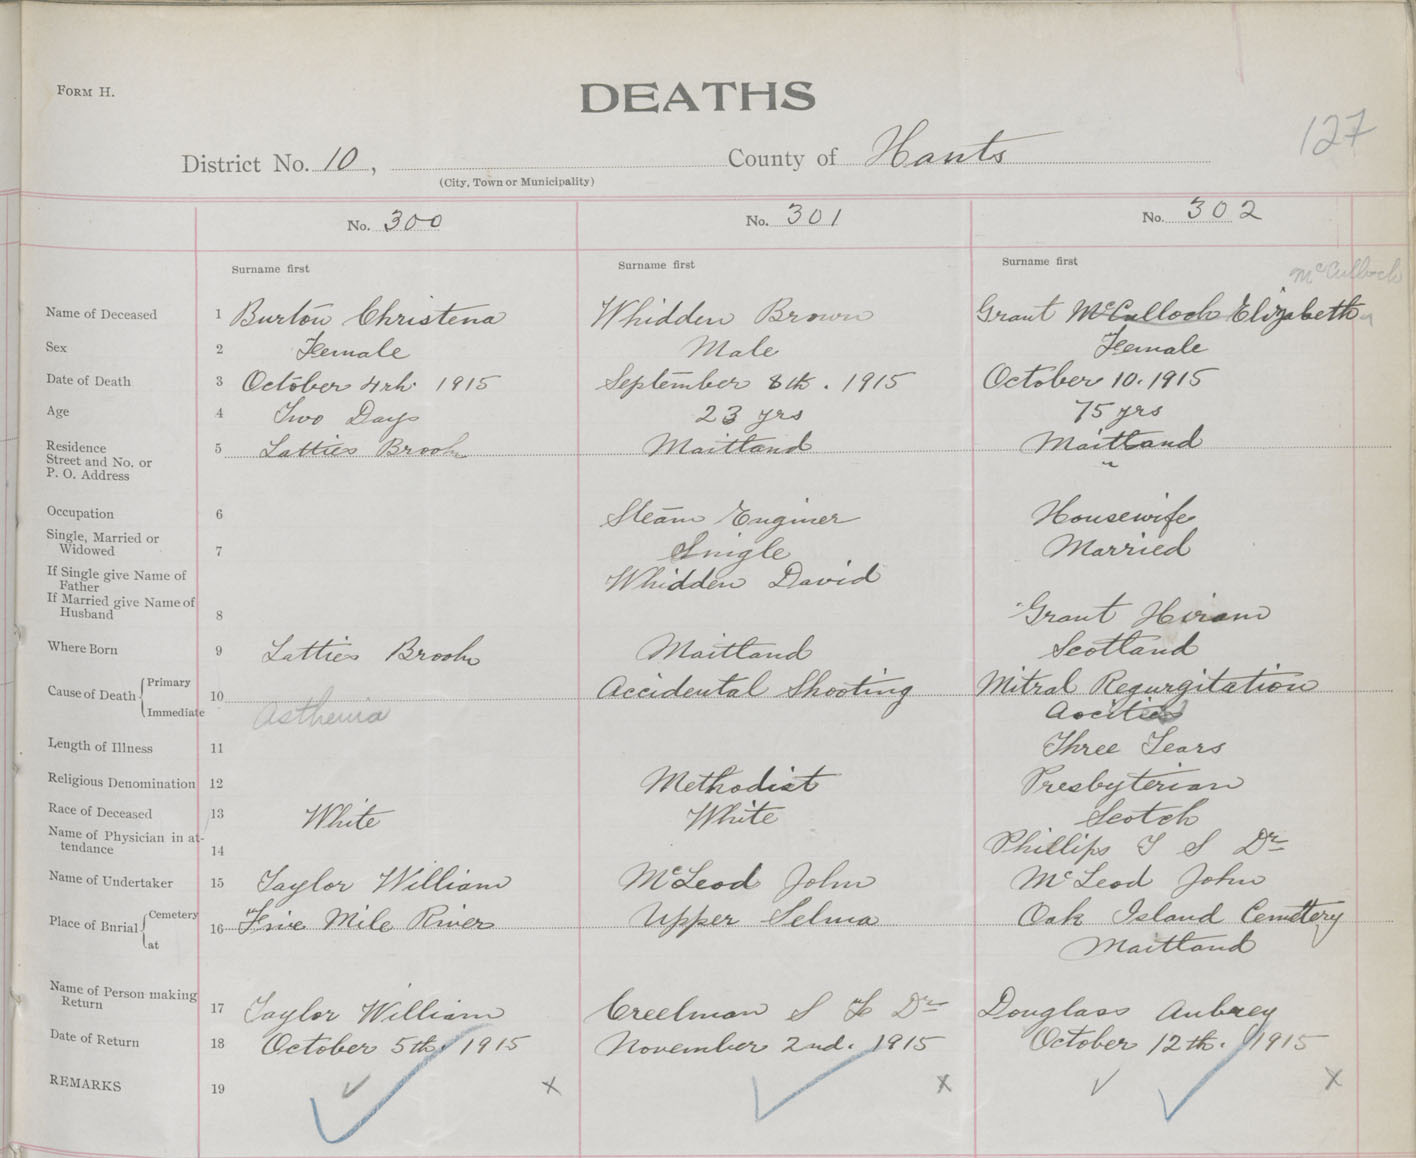 FORM H.
DEATHS
127
District No. 10, County of Hants
(City, Town or Municipality)
No. 300 No. 301 No. 302
Surname first Surname first Surname first
McCulloch
Name of Deceased 1 Burton Christena Whidden Brown Grant McCulloch Elizabeth
Sex 2 Female Male Female
Date of Death 3 October 4th. 1915 September 8th. 1915 October 10. 1915
Age 4 Two Days 23 yrs 75 yrs
Residence 5 Latties Brook Maitland Maitland
Street and No. or
P. O. Address
Occupation 6 Steam Enginer Housewife
Single, Married or
Widowed 7 Single Married
If Single give Name of
Father Whidden David
If Married give Name of
Husband 8 Grant Hiram
Where Born 9 Latties Brook Maitland Scotland
Cause of Death Primary 10 Accidental Shooting Mitral Regurgitation
Immediate Asthenia
Length of Illness 11 Three Years
Religious Denomination 12 Methodist Presbyterian
Race of Deceased 13 White White Scotch
Name of Physician in at-
tendance 14 Phillips T S Dr
Name of Undertaker 15 Taylor William McLeod John McLeod John
Place of Burial Cemetery 16 Five Mile River Upper Selma Oak Island Cemettery
at Maitland
Name of Person making
Return 17 Taylor William Creelman S F Dr Douglass Aubrey
Date of Return 18 October 5th. 1915 November 2nd. 1915 October 12th. 1915
REMARKS 19 x x x